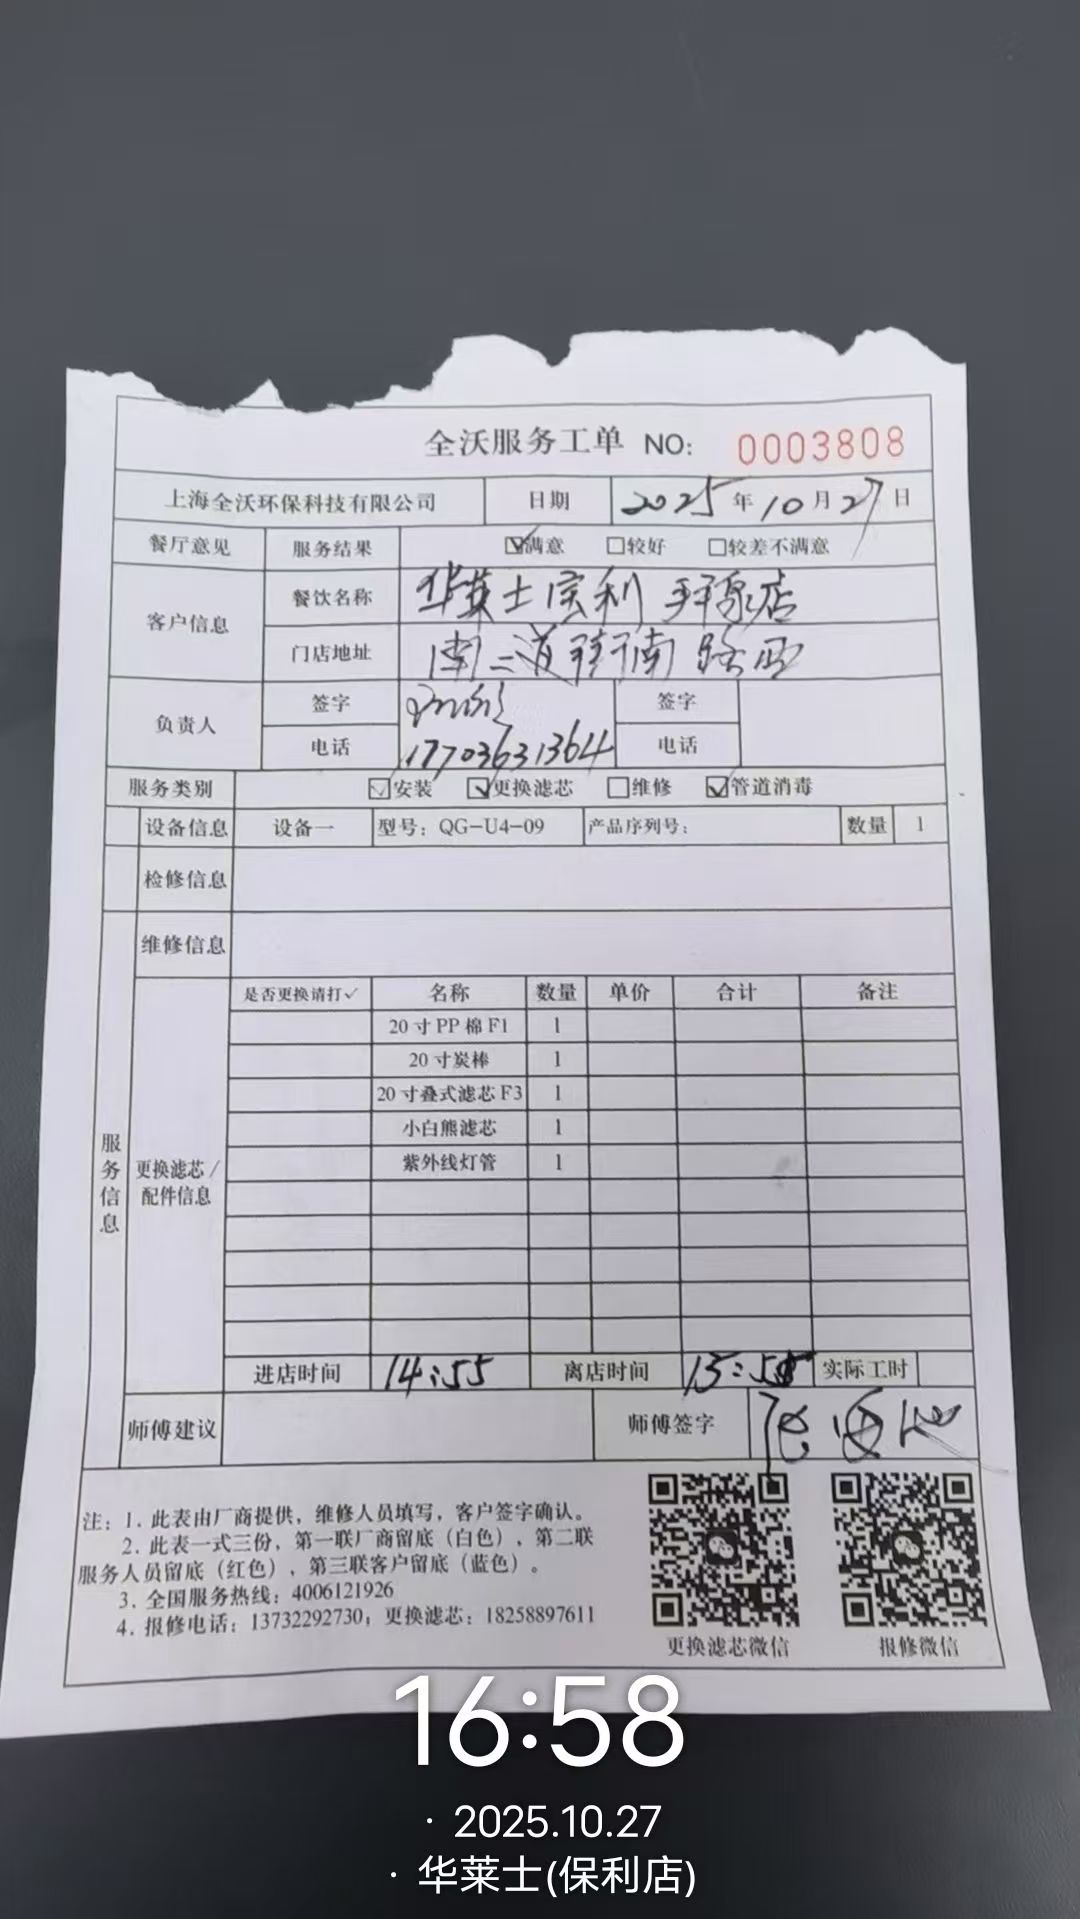 全沃服务工单 NO: 0003808
上海全沃环保科技有限公司 日期 2025年10月27日
餐厅意见 服务结果 ☑满意 □较好 □较差不满意
客户信息 餐饮名称 华莱士保利 店
门店地址 南二道街南路西
负责人 签字 签字
电话 17703631364 电话
服务类别 ☑安装 ☑更换滤芯 □维修 ☑管道消毒
设备信息 设备一 型号: QG-U4-09 产品序列号: 数量 1
检修信息
维修信息
服务信息
更换滤芯/配件信息
是否更换请打✓ 名称 数量 单价 合计 备注
20寸PP棉F1 1
20寸炭棒 1
20寸叠式滤芯F3 1
小白熊滤芯 1
紫外线灯管 1
进店时间 14:55 离店时间 15:58 实际工时
师傅建议 师傅签字
注: 1. 此表由厂商提供，维修人员填写，客户签字确认。
2. 此表一式三份，第一联厂商留底（白色），第二联
服务人员留底（红色），第三联客户留底（蓝色）。
3. 全国服务热线: 4006121926
4. 报修电话: 13732292730; 更换滤芯: 18258897611
更换滤芯微信 报修微信
16:58
· 2025.10.27
· 华莱士(保利店)